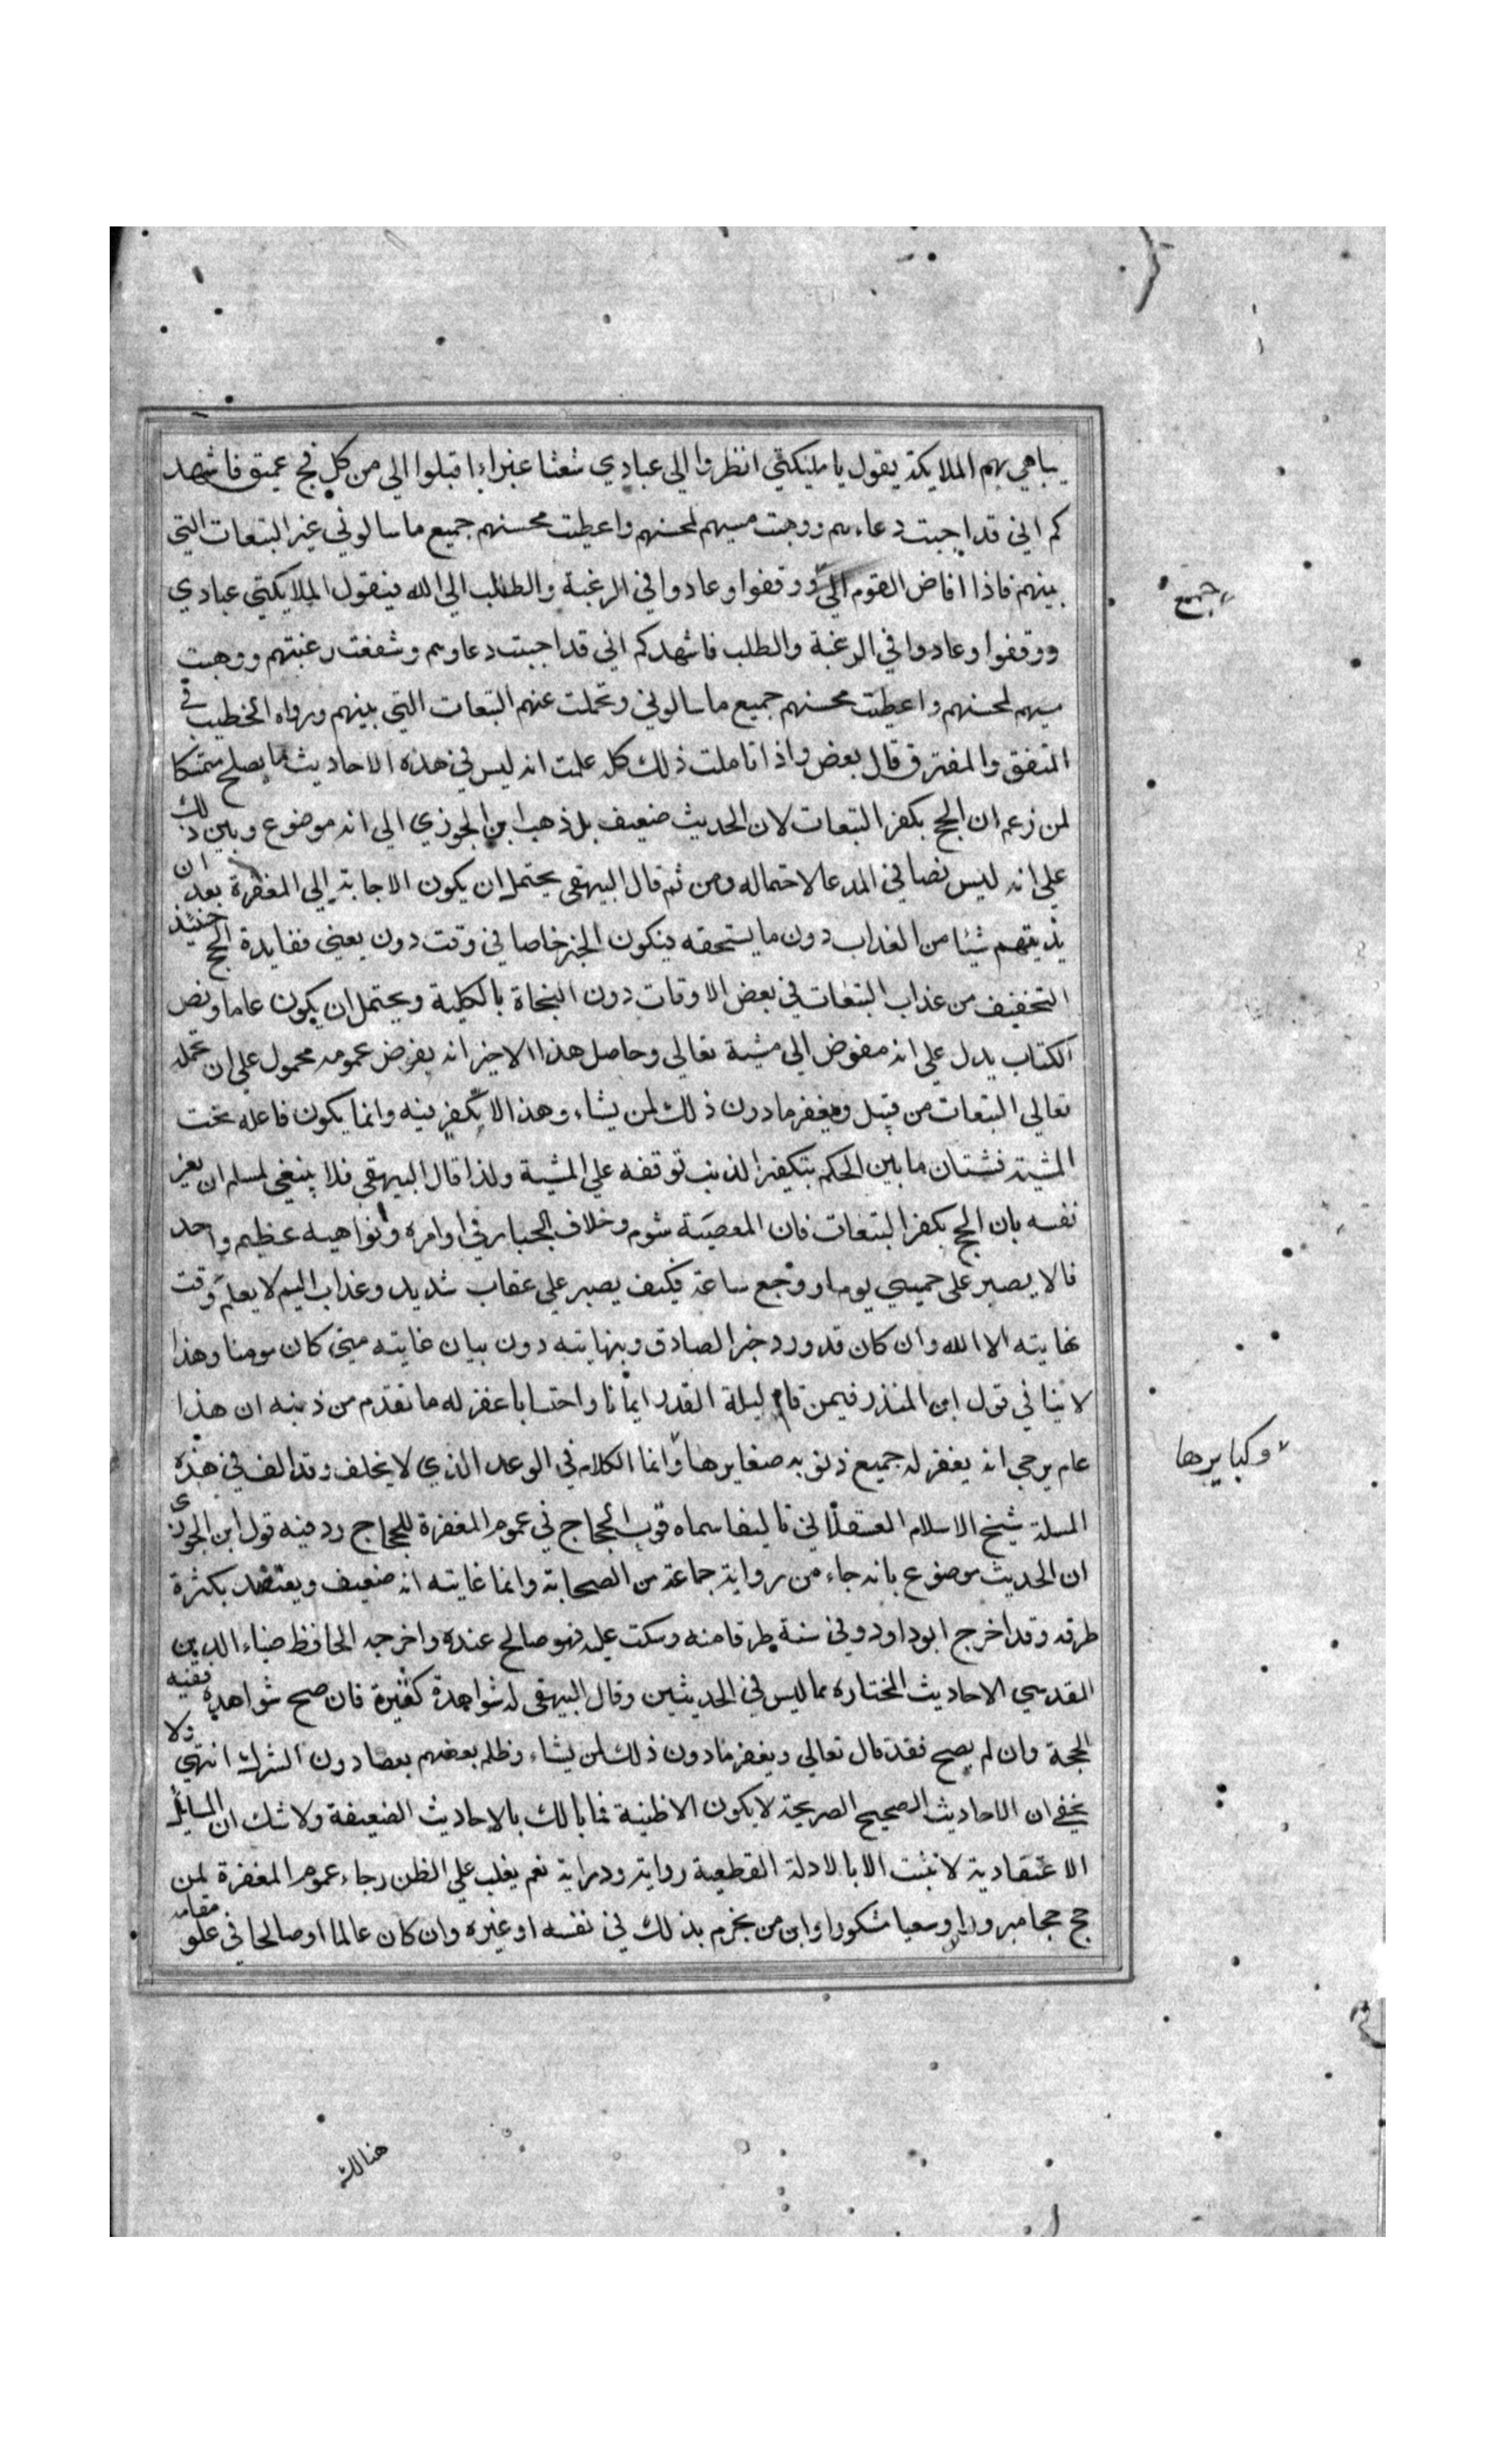 يباهي بهم الملايكة يقول يا مليكتي انظروا الى عبادي شعثا غبراء اقبلوا الي من كل فج عميق فاشهد
كم اني قد اجبت دعاءهم ووهبت مسيهم لمحسنهم واعطيت محسنهم جميع ما سالوني غير التبعات التي
بينهم فاذا افاض القوم الي ووقفوا وعادوا في الرغبة والطلب الى الله فيقول الملايكتي عبادي
جمع
ووقفوا وعادوا في الرغبة والطلب فاشهدكم اني قد اجبت دعاوهم وشفعت رغبتهم ووهبت
مسيهم لمحسنهم واعطيت محسنهم جميع ما سالوني وتحملت عنهم التبعات التي بينهم ورواه الخطيب في
المتفق والمفترق قال بعض واذا تاملت ذلك كله علمت انه ليس في هذه الاحاديث ما يصلح متمسكا
لمن زعم ان الحج يكفر التبعات لان الحديث ضعيف بل ذهب ابن الجوزي الى انه موضوع وبين ذلك
على انه ليس نصا في المدعا لاحتماله ومن ثم قال البيهقي يحتمل ان يكون الاجابة الى المغفرة بعد ان
يذيقهم شيئا من العذاب دون ما يستحقه فيكون الخبر خاصا في وقت دون يعني ففايدة الحج حينئذ
التخفيف من عذاب التبعات في بعض الاوقات دون النجاة بالكلية ويحتمل ان يكون عاما ونص
الكتاب يدل على انه مفوض الى مشية تعالى وحاصل هذا الاخير انه بفرض عمومه محمول على ان تحمله
تعالى التبعات من قبيل ويغفر ما دون ذلك لمن يشاء وهذا لا تكفير فيه وانما يكون فاعله تحت
المشية فشتان ما بين الحكم بتكفير الذنب توقفه على المشية ولذا قال البيهقي فلا ينبغي لمسلم ان يغر
نفسه بان الحج يكفر التبعات فان المعصية شوم وخلاف الجبار في اوامره ونواهيه عظيم واحد
نا لا يصبر على حمي يوم او وجع ساعة فكيف يصبر على عقاب شديد وعذاب اليم لا يعلم وقت
نهايته الا الله وان كان قد ورد خبر الصادق وبنهايته دون بيان غايته متى كان مومنا وهذا
لا ينافي قول ابن المنذر فيمن قام ليلة القدر ايمانا واحتسابا غفر له ما تقدم من ذنبه ان هذا
عام يرجي انه يغفر له جميع ذنوبه صغايرها وانما الكلام في الوعد الذي لا يخلف وقد الف في هذه
وكبايرها
المسلة شيخ الاسلام العسقلاني تاليفا سماه قوت الحجاج في عموم المغفرة للحجاج رد فيه قول ابن الجوزي
ان الحديث موضوع بانه جاء من رواية جماعة من الصحابة وانما غايته انه ضعيف ويعتضد بكثرة
طرقه وقد اخرج ابو داود وفي سنة طرفا منه وسكت عليه فهو صالح عنده واخرجه الحافظ ضياء الدين
المقدسي الاحاديث المختاره مما ليس في الحديثين وقال البيهقي له شواهدة كثيرة فان صح شواهده ففيه
الحجة وان لم يصح فقد قال تعالى ويغفر ما دون ذلك لمن يشاء وظلم بعضهم بعضا دون الشرك انتهى ولا
يخفى ان الاحاديث الصحيح الصريحة لا يكون الا ظنية فما بالك بالاحاديث الضعيفة ولا شك ان المسائل
الاعتقادية لا تثبت الا بالادلة القطعية رواية ودراية نعم يغلب على الظن رجاء عموم المغفرة لمن
حج حجا مبرورا وسعيا مشكورا واين من يجزم بذلك في نفسه او غيره وان كان عالما او صالحا في علو مقامه
هنالك